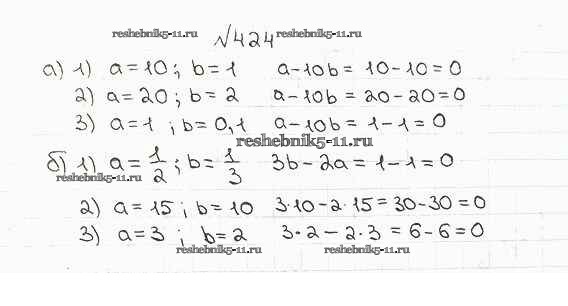 reshebnik5-11.ru №424 reshebnik5-11.ru
а) 1) a=10; b=1 a-10b= 10-10=0
2) a=20; b=2 a-10b=20-20=0
3) a=1; b=0,1 a-10b=1-1=0
reshebnik5-11.ru
б) 1) a=1/2; b=1/3 3b-2a=1-1=0
reshebnik5-11.ru
2) a=15; b=10 3·10-2·15=30-30=0
3) a=3; b=2 3·2-2·3=6-6=0
reshebnik5-11.ru reshebnik5-11.ru